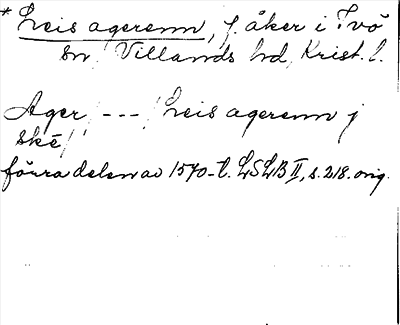 * Leis agerenn, f. åker i Ivö
sn, Villands hd, Krist. l.
Ager / - - - / Leis agerenn j
ske /
förra delen av 1570-t. LSLB II, s. 218. orig.